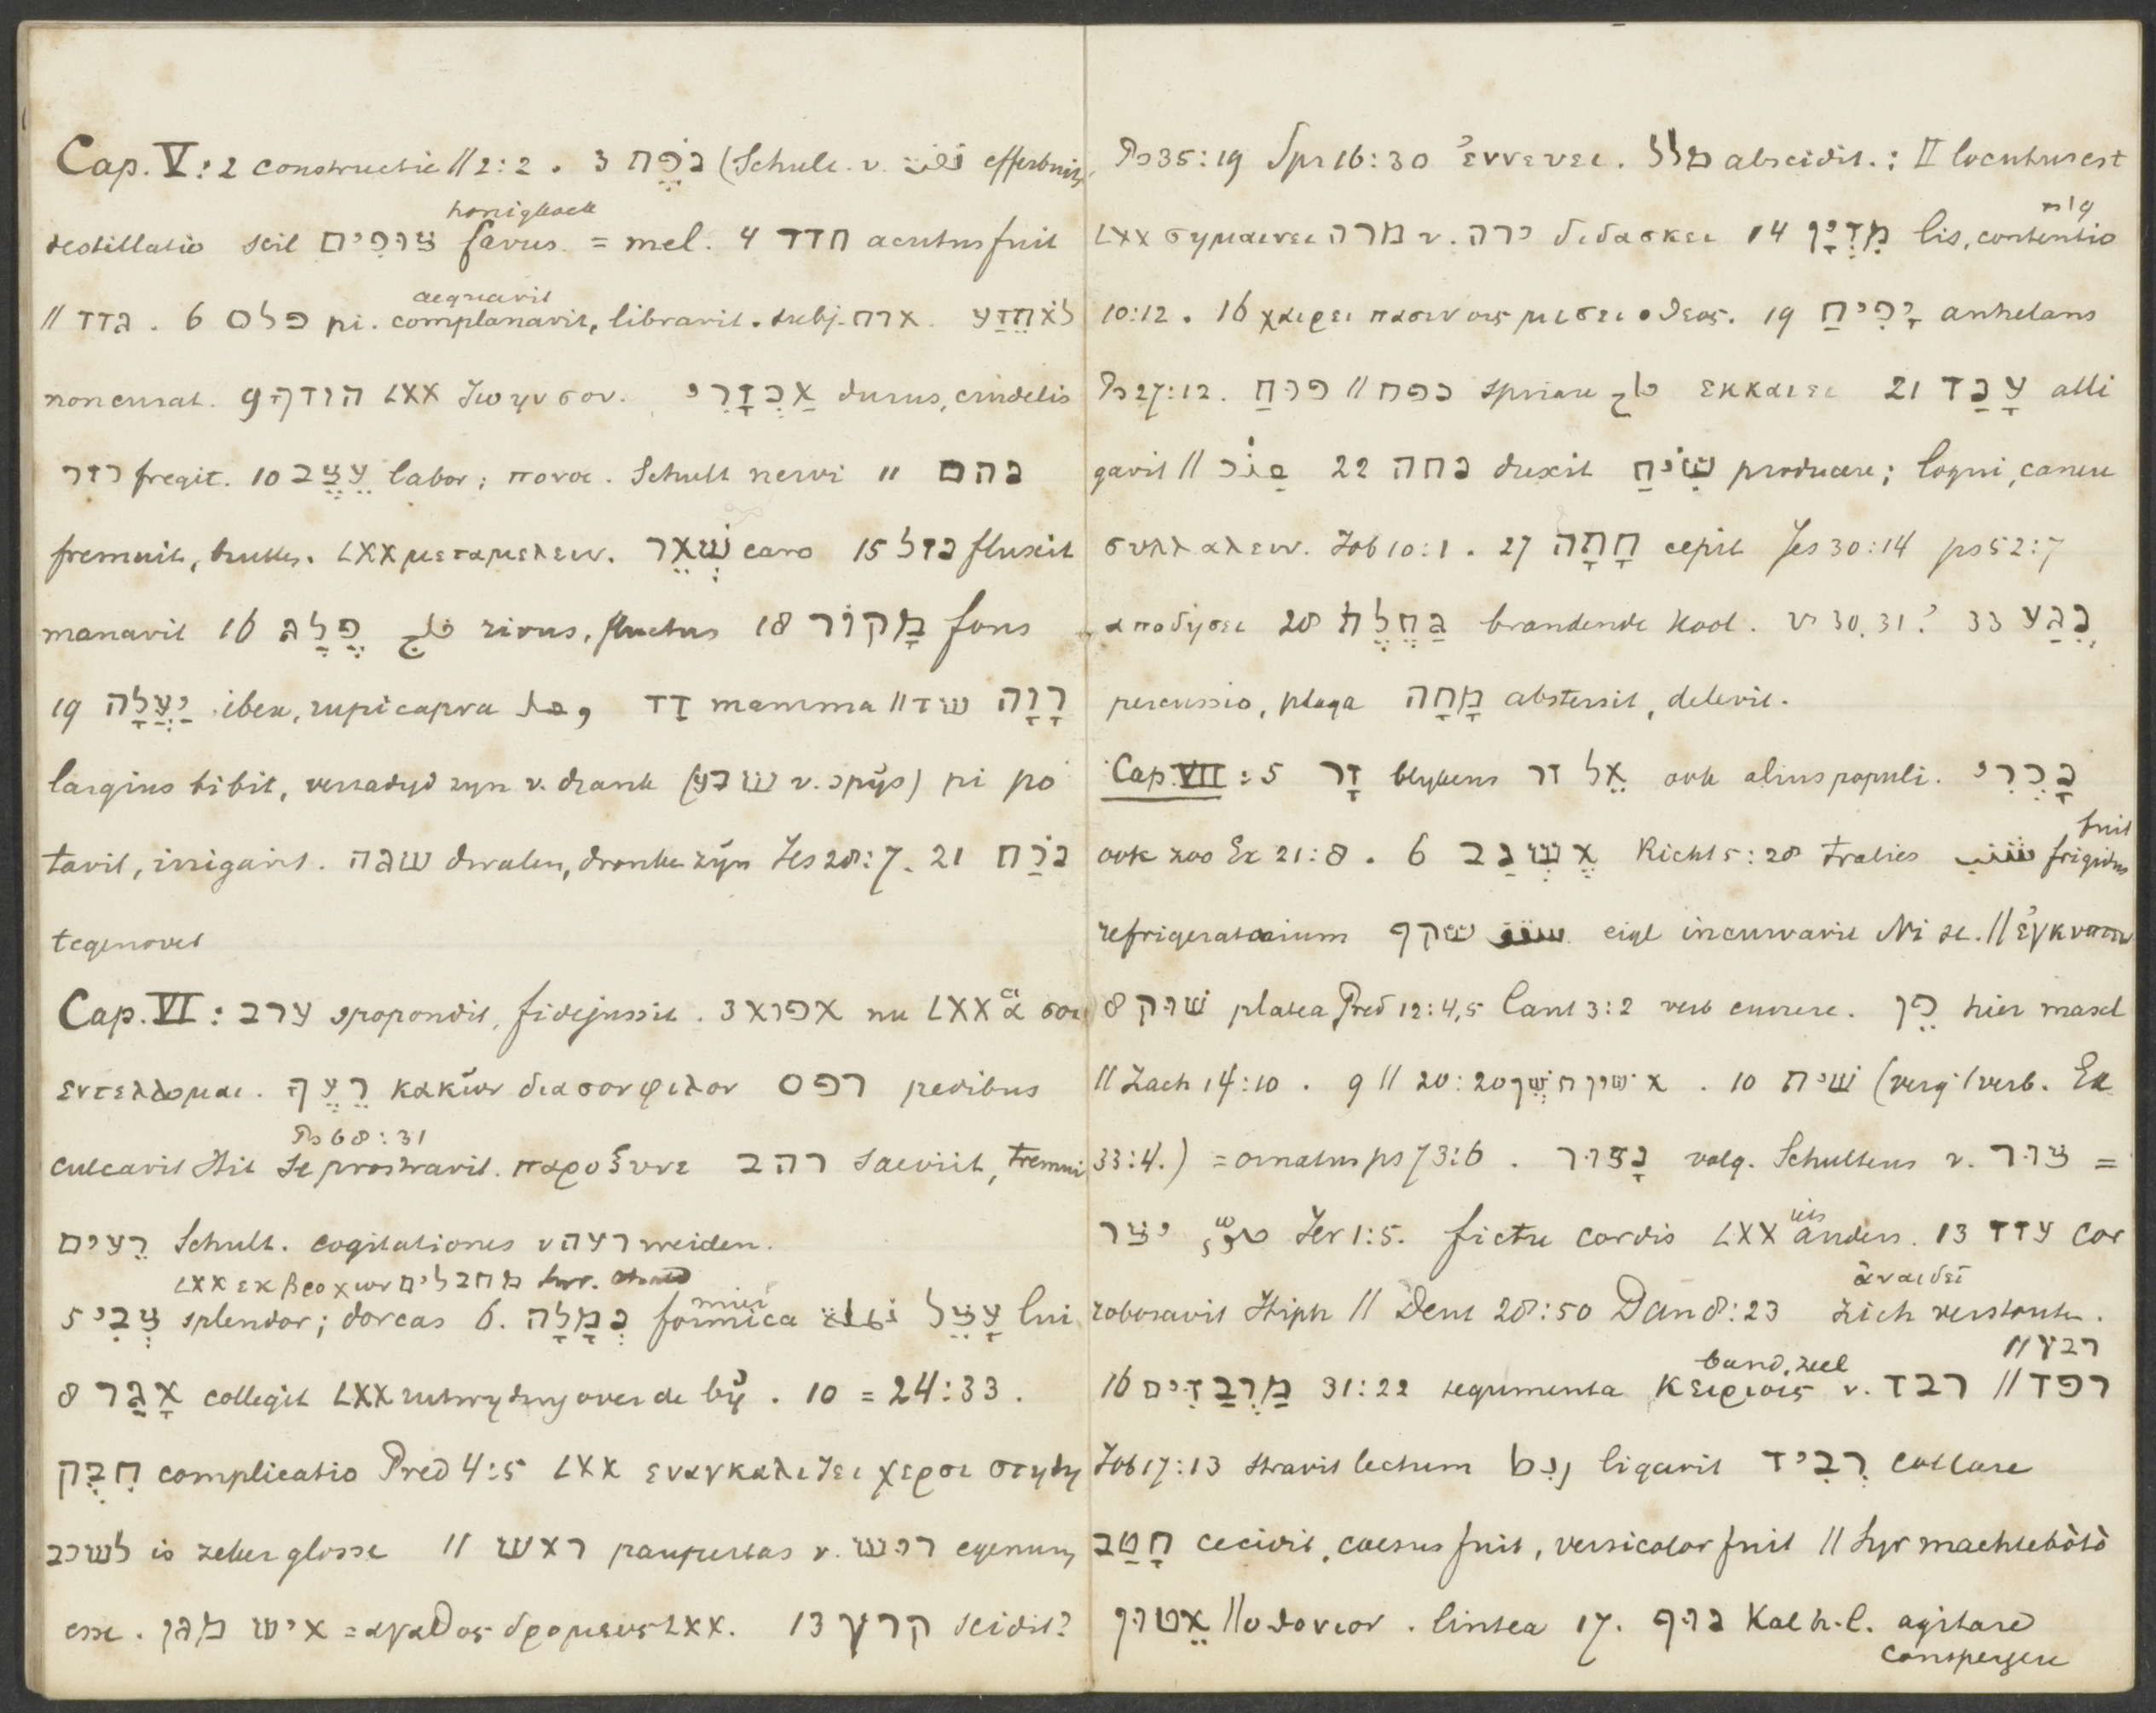 Cap. V: 2 constructie // 2:2. 3 נֹפֶת (Schult. v. efferbuit,
honigkoek
destillatio scil צוּפִים favus = mel. 4 חדד acutus fuit
aequavit
// גדד. 6 פלס pi. complanavit, libravit. subj. ארח. לֹא תֵדַע
non curat. 9 הודךָ LXX ζωην σου. אַכְזָרִי durus, crudelis
כזר fregit. 10 עֶצֶב labor; πονος. Schult nervi 11 נהם
fremuit, LXX μεταμελειν. שְׁאֵר caro 15 נזל fluxit
manavit 16 פֶּלֶג فلج rivus, fluctus 18 מָקוֹר fons
19 יַעֲלָה ibex, rupicapra وعل דַּד mamma // שד רָוָה
largius bibit, verzadigd zyn v. drank (שבע v. spijs) pi po
tavit, irrigavit. שגה dwalen, dronken zijn Jes 28:7. 21 נֹכַח
tegenover
Cap. VI: ערב spopondit, fidejussit. 3 אפוא nu LXX ἃ σοι
εντελλομαι. רֵעֶךָ κακῶν δια σον φιλον רפס pedibus
Ps 68:31
culcavit Hit se prostravit. παροξυνε רהב saeviit, fremui
רֵעִים Schult. cogitationes v רעה weiden.
LXX εκ βροχων מחבלים
5 צְבִי splendor; dorcas 6. נְמָלָה formica עָצֵל lui
mier
8 אָגַר collegit LXX uitwyding over de bij. 10 = 24:33.
חִבֻּק complicatio Pred 4:5 LXX εναγκαλιζει χερσι στηθη
לשכב is zeker glosse 11 ראש paupertas v. רוש egenum
esse. איש מגן = αγαθος δρομευς LXX. 13 קרץ scidit?
Ps 35:19 Spr 16:30 ἐννευει. מלל abscidit.: II locutus est
LXX σημαινει מרה v. ירה διδασκει 14 מִדְיָן lis, contentio
10:12. 16 χαιρει πασιν οις μισει ο θεος. 19 יָפִיחַ anhelans
Ps 27:12. פוּחַ // נפח spirare فاح εκκαιει 21 עָנַד alli
gavit // 22 נחה duxit שִׂיחַ producere; loqui, canere
συλλαλειν. Job 10:1. 27 חָתָה cepit Jes 30:14 ps 52:7
αποδησει 28 גַּחֶלֶת brandende kool. v 30, 31? 33 נֶגַע
percussio, plaga מָחָה abstersit, delevit.
Cap. VII: 5 זָר blykens אֵל זר ook alius populi. נָכְרִי
ook zoo Ex 21:8. 6 אֶשְׁנָב Richt 5:28 tralies شنب frigidus
fuit
refrigeratorium שקף سقف eigl incurvavit Ni se. // ἐγκυπτω
8 שׁוּק platea Pred 12:4,5 Cant 3:2 verb currere. פֵּן hier masc
// Zach 14:10. 9 // 20:20 אישון חשֶׁךְ. 10 שׁית (verg 1 verb. Ex
33:4.) = ornatus ps 73:6. נָצוּר volg. Schultens v. צוּר =
יצר Jer 1:5. ficta cordis LXX anders. 13 עזז cor
ἀναιδεῖ
roboravit Hiph // Deut 28:50 Dan 8:23 zich verstouten.
band, zeel רבע //
16 מַרְבַדִּים 31:22 tegumenta κειριαις v. רבד // רפד
Job 17:13 stravit lectum ربط ligavit רְבִיד collare
חָטַב cecidit, caesus fuit, versicolor fuit // Syr machtebòtò
אֵטוּן // οθονιον. lintea 17. נוּף Kal h.l. agitare
conspergere